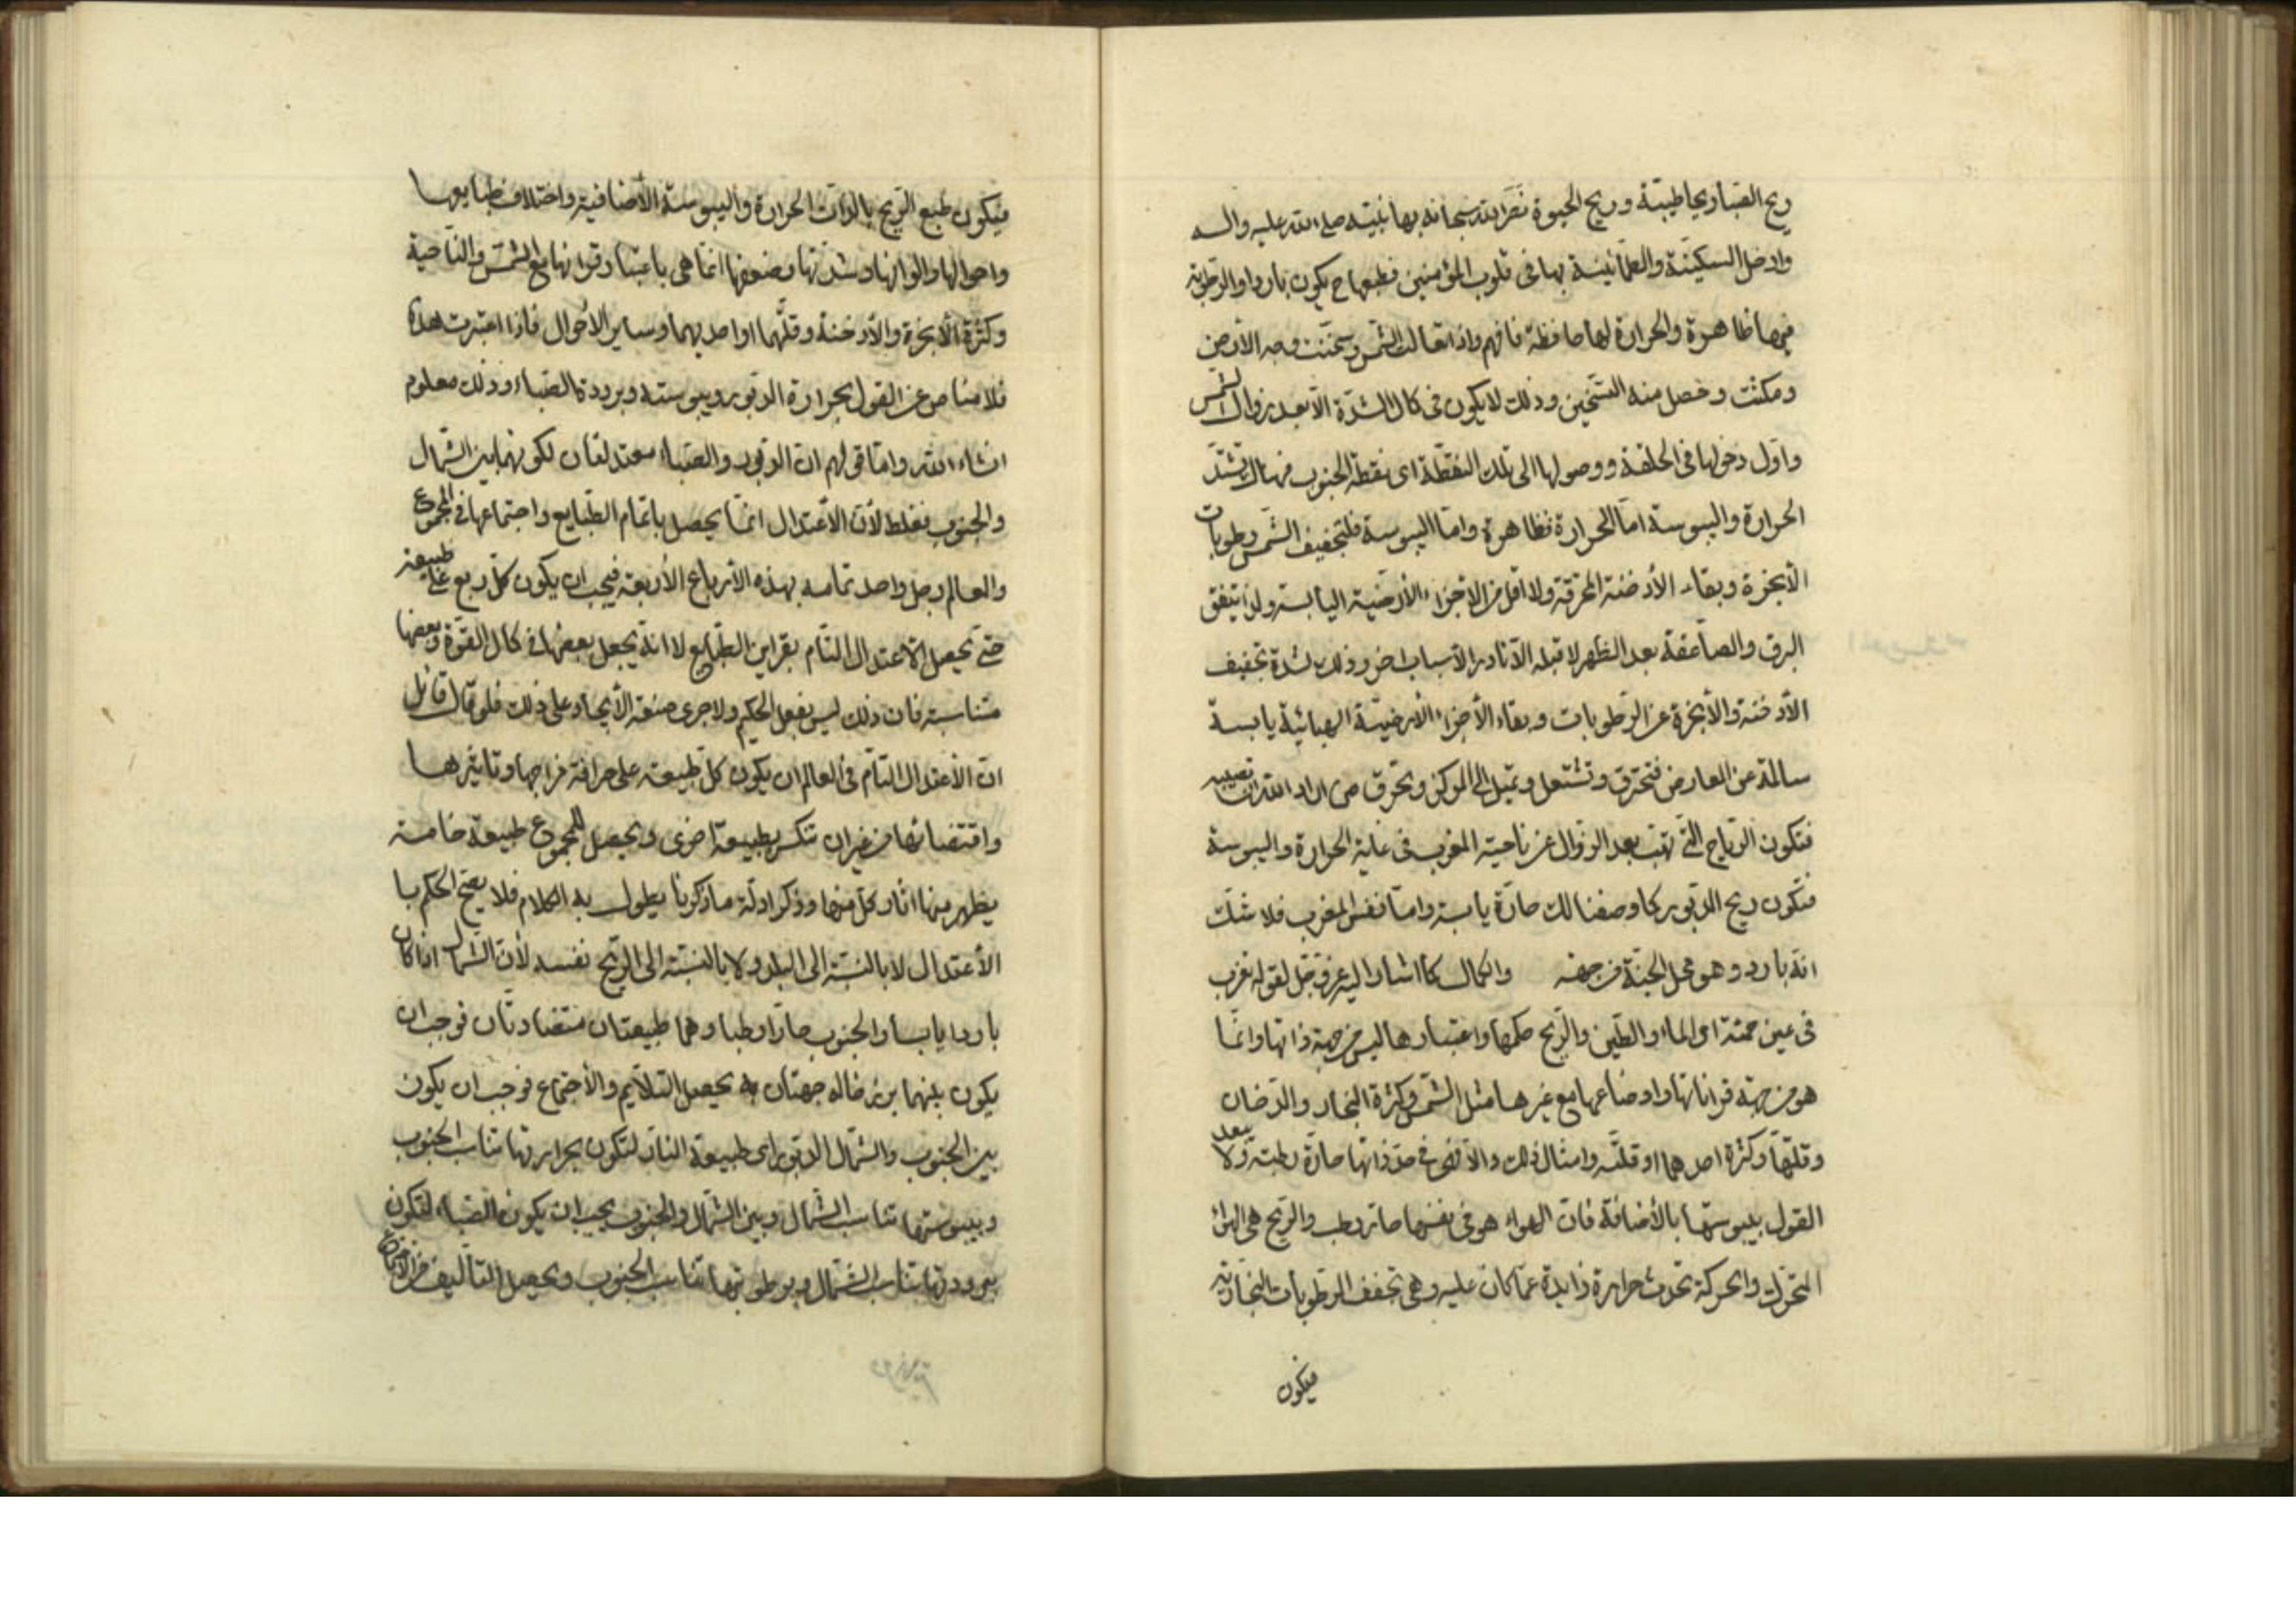 ريح الصبا ريحا طيبة وريح الحيوة نصر الله سبحانه بها نبيه صلى الله عليه واله
وادخل السكينة والطمأنينة بها في قلوب المؤمنين فطبعها ح يكون باردا والرطوبة
فيها ظاهرة والحرارة لها حافظة فافهم واذا تعالت الشمس وسخنت وجه الأرض
ومكثت وحصل منه التسخين وذلك لا يكون في كمال الشدة الا بعد زوال الشمس
واول دخولها في الحلقة ووصولها الى تلك النقطة اى نقطة الجنوب فهنالك تشتد
الحرارة واليبوسة اما الحرارة فظاهرة واما اليبوسة فلتجفيف الشمس رطوبات
الأبخرة وبقاء الأدخنة المحترقة ولا اقل من الاجزاء الأرضية اليابسة ولذا يتفق
البرق والصاعقة بعد الظهر لا قبله الا نادرا لأسباب اخر وذلك لشدة تجفيف
الأدخنة والأبخرة عن الرطوبات وبقاء الأجزاء الأرضية الهبائية يابسة
سالمة عن المعارض فتحترق وتشتعل وتميل الى المركز وتحرق من اراد الله ان تصيبه
فتكون الرياح التي تهب بعد الزوال عن ناحية المغرب في غاية الحرارة واليبوسة
فتكون ريح الدبور كما وصفنا لك حارة يابسة واما نفس المغرب فلا شك
انه بارد وهو محل الجنة من جهة والكمال كما اشار اليه عز وجل لقوله تغرب
في عين حمئة اى الماء والطين والريح حكمها واعتبارها ليس من جهة ذاتها وانما
هو من جهة قراناتها واوضاعها مع غيرها مثل الشمس وكثرة البخار والدخان
وقلتها وكثرة احدهما او قلته وامثال ذلك والا فهي في حد ذاتها حارة رطبة ولا يبعد
القول بيبوستها بالأضافة فان الهواء هو في نفسها حار رطب والريح هي الهواء
المتحرك والحركة تحدث حرارة زايدة عما كان عليه وهي تجفف الرطوبات البخارية
فيكون
فيكون طبع الريح بالذات الحرارة واليبوسة الأضافية واختلاف طبايعها
واحوالها والوانها وشدتها وضعفها انما هي باعتبار قرانها مع الشمس والناحية
وكثرة الأبخرة والأدخنة وقلتهما او احديهما وساير الأحوال فاذا اعتبرت هذه
فلا مناص عن القول بحرارة الدبور ويبوسته وبرودة الصباء وذلك معلوم
انشاء الله واما قولهم ان الدبور والصباء معتدلتان لكونهما بين الشمال
والجنوب فغلط لأن الأعتدال انما يحصل باتمام الطبايع واجتماعها في المجموع
والعالم رجل واحد تمامه بهذه الأرباع الأربعة فيجب ان يكون كل ربع على طبيعة
حتى يحصل الاعتدال التام بقران الطبايع لا انه يجعل بعضها في كمال القوة وبعضها
متناسبة فان ذلك ليس بفعل الحكيم ولا جرى صنعة الأيجاد على ذلك فلو قال قائل
ان الأعتدال التام في العالم ان يكون كل طبيعة على صرافة مزاجها وتاثيرها
واقتضائها من غير ان تنكسر بطبيعة اخرى ويحصل للمجموع طبيعة خامسة
يظهر منها اثار كل منها وذكر ادلة ما ذكرنا يطول به الكلام فلا يصح الحكم با
الأعتدال لا بالنسبة الى البلد ولا بالنسبة الى الريح نفسه لأن الشمال اذا كان
باردا يابسا والجنوب حارا رطبا وهما طبيعتان متضادتان فوجب ان
يكون بينهما برزخا له جهتان به يحصل التلايم والأجتماع فوجب ان يكون
بين الجنوب والشمال الدبور اى طبيعة النار لتكون بحرارتها تناسب الجنوب
وبيبوستها تناسب الشمال وبين الشمال والجنوب يجب ان يكون الصباء لتكون
ببرودتها تناسب الشمال وبرطوبتها تناسب الجنوب ويحصل التأليف